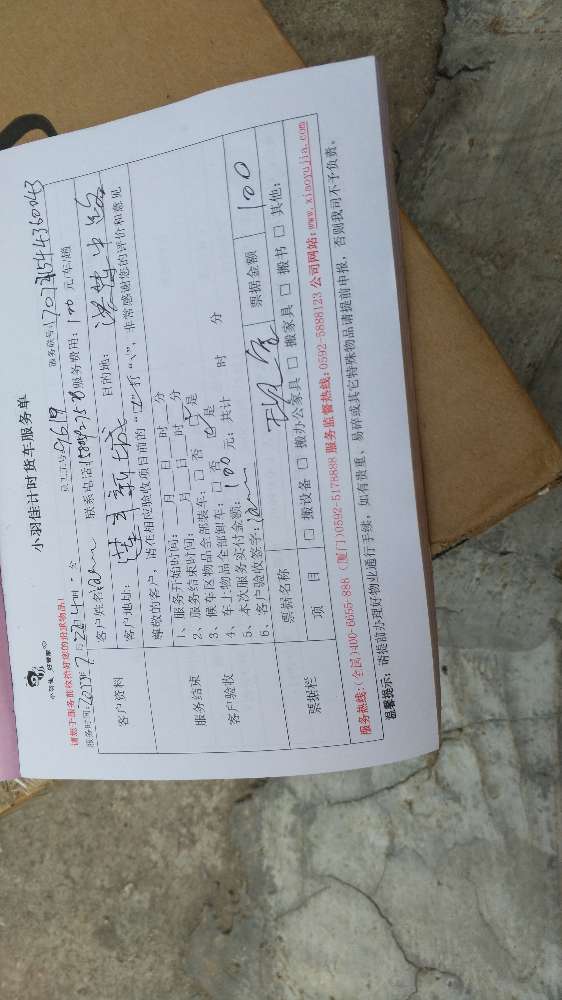 小羽佳计时货车服务单
小羽佳 好管家
请您于服务前收拾好您的贵重物品!
服务时间:2017年7月26日14时:分
员工工号:9619
服务单号:
客户资料
客户姓名:
联系电话:
服务费用:100元/车/趟
客户地址:莲花新城
目的地:
服务结束
客户验收
尊敬的客户,请在相应验收项目前的“□”打“√”,非常感谢您的评价和意见
1、服务开始时间: 月 日 时 分
2、服务结束时间: 月 日 时 分
3、候车区物品全部装车:□否 ☑是
4、车上物品全部卸车:□否 ☑是
5、本次服务实付金额:100元;共计 时 分
6、客户验收签字:
票据栏
票据名称
现金
票据金额
100
项 目
□搬设备 □搬办公家具 □搬家具 □搬书 □其他:
服务热线:(全国)400-6655-888 (厦门)0592-5178888 服务监督热线:0592-5888123 公司网站:www.xiaoyujia.com
温馨提示:请提前办理好物业通行手续,如有贵重、易碎或其它特殊物品请提前申报,否则我司不予负责。